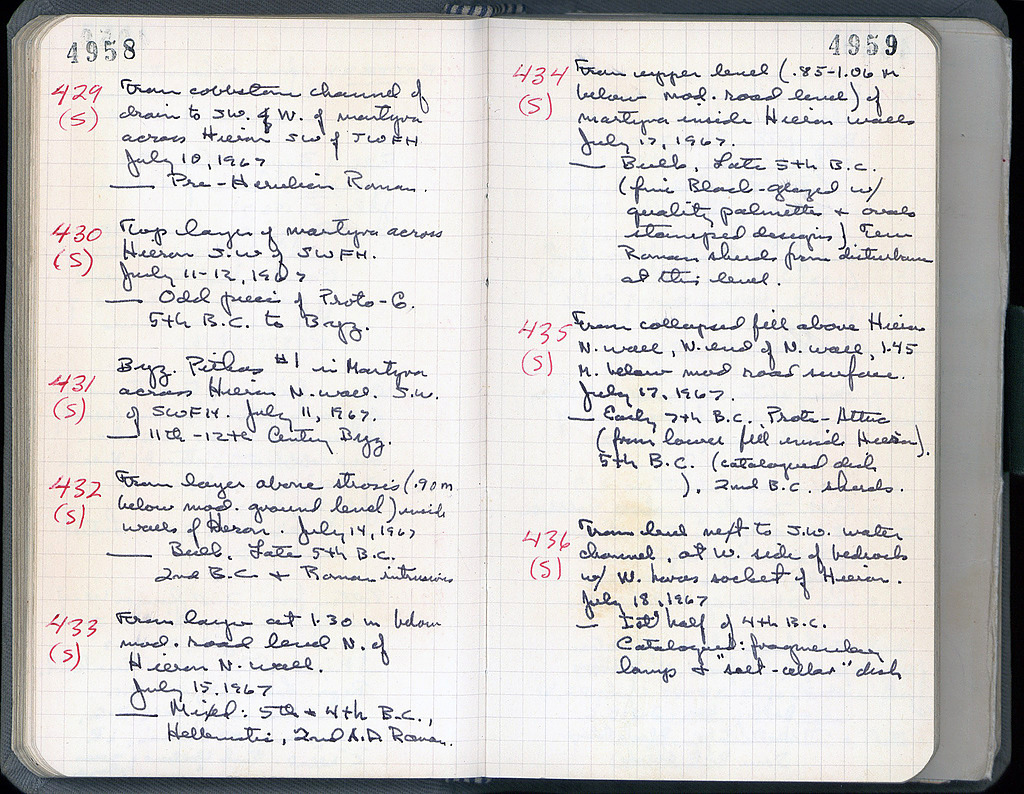 4958
429 From cobblestone channel of
(S) drain to SW. of W. of martyra
across Hieron SW of SWFH
July 10, 1967
— Pre-Herulian Roman.
430 Top layer of martyra across
(S) Hieron S.W. of SWFH.
July 11-12, 1967
— Odd pieces of Proto-G.
5th B.C. to Byz.
431 Byz. Pithos #1 in Martyra
(S) across Hieron N. wall. S.W.
of SWFH. July 11, 1967.
— 11th-12th Century Byz.
432 From layer above strosis (.90 m
(S) below mod. ground level) inside
walls of Hieron. July 14, 1967
— Bulk, Late 5th B.C.
2nd B.C. + Roman intrusions
433 From layer at 1.30 m below
(S) mod. road level N. of
Hieron N. wall.
July 15, 1967
— Mixed: 5th + 4th B.C.,
Hellenistic, 2nd A.D Roman.
4959
434 From upper level (.85-1.06 M
(S) below mod. road level) of
martyra inside Hieron walls
July 17, 1967.
— Bulk, Late 5th B.C.
(fine Black-glazed w/
quality palmette + ovals
stamped designs) Few
Roman sherds from disturbance
at this level.
435 From collapsed fill above Hieron
(S) N. wall, W. end of N. wall, 1.45
M. below mod road surface.
July 17, 1967.
— Early 7th B.C. Proto-Attic
(from lower fill inside Hieron).
5th B.C. (catalogued dish
), 2nd B.C. sherds.
436 From next to S.W. water
(S) channel, at W. side of bedrock
w/ W. horos socket of Hieron.
July 18, 1967
— 1st half of 4th B.C.
Catalogued: fragmentary
lamps + "salt-cellar" dish